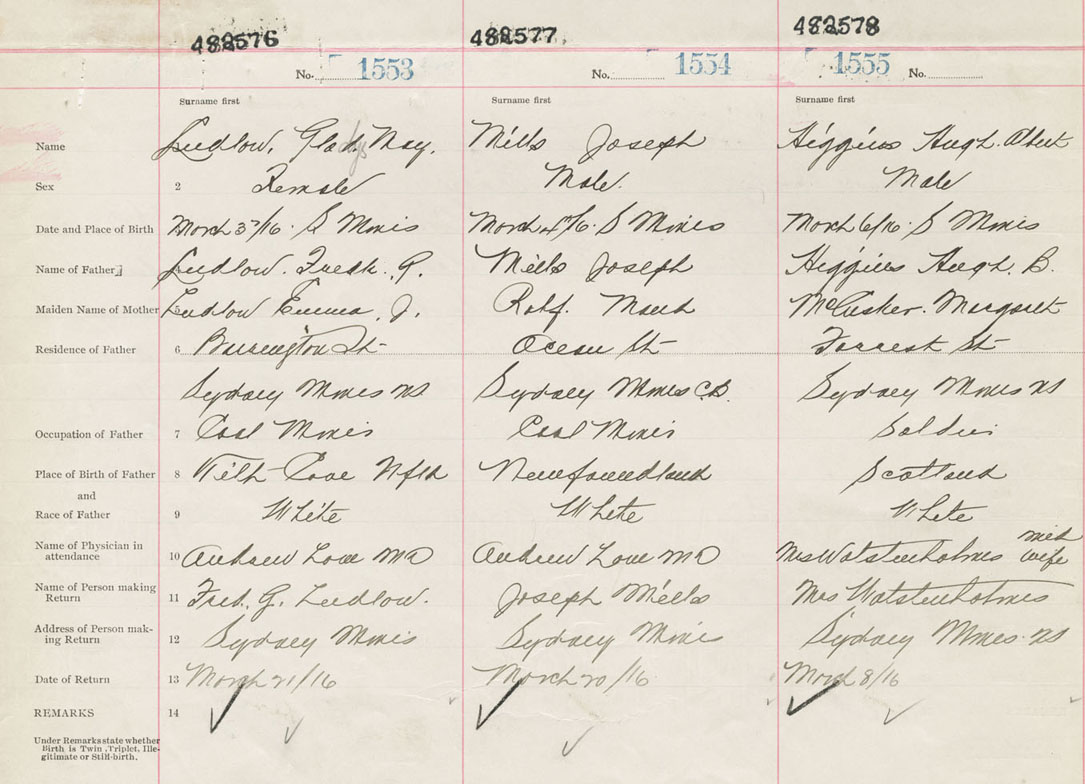 482576 482577 482578
No. 1553 No. 1554 1555 No.
Surname first Surname first Surname first
Name Ludlow, Gladys May. Mills Joseph Higgins Hugh Albert
Sex 2 Female Male. Male
Date and Place of Birth March 3/16. S Mines March 4/16. S Mines March 6/16. S Mines
Name of Father Ludlow. Fredk. G. Mills Joseph Higgins Hugh. B.
Maiden Name of Mother 5 Ludlow Emma. J. Maud McCusker. Margaret
Residence of Father 6 Barrington St Ocean St Forrest St
Sydney Mines NS Sydney Mines C.B. Sydney Mines NS
Occupation of Father 7 Coal Miner Coal Miner Soldier
Place of Birth of Father 8 Tilt Cove Nfld Newfoundland Scotland
and
Race of Father 9 White White White
Name of Physician in
attendance 10 Andrew Love MD Andrew Love MD Mrs Watstenholmes mid wife
Name of Person making
Return 11 Fred. G. Ludlow. Joseph Mills Mrs Watstenholmes
Address of Person mak-
ing Return 12 Sydney Mines Sydney Mines Sydney Mines. NS
Date of Return 13 March 21/16 March 20/16 March 8/16
REMARKS 14
Under Remarks state whether
Birth is Twin, Triplet, Ille-
gitimate or Still-birth.